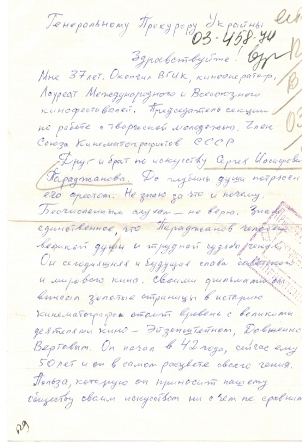 Генеральному Прокурору Украины
03-458-74
Здравствуйте.
Мне 37 лет. Окончил ВГИК, кинооператор,
Лауреат Международного и Всесоюзного
кинофестивалей. Председатель секции
по работе с творческой молодежью. Член
Союза Кинематографистов СССР
Друг и брат по искусству Сергея Иосифовича
Параджанова. До глубины души потрясен
его арестом. Не знаю за что и почему.
слухам – не верю. Знаю
единственное, что Параджанов человек
великой души и трудной судьбы
Он сегодняшняя и будущая слава советского
и мирового кино. Своими фильмами он
вписал золотые страницы в историю
кинематографа стоит вровень с великими
деятелями кино – Эйзенштейном, Довженко
Вертовым. Он начал в 42 года, сейчас ему
50 лет и он в самом расцвете своего гения.
Польза, которую он приносит нашему
обществу своим искусством ни с чем не сравнима